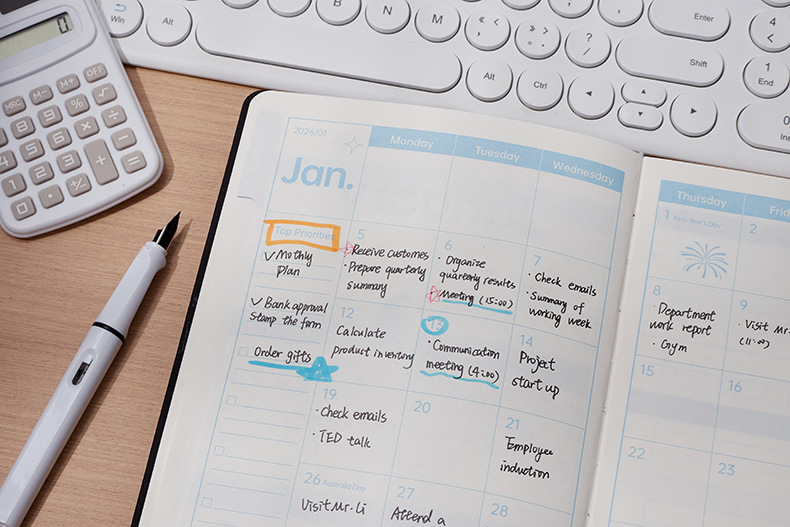 0
Win
Alt
B
N
M
Enter
Shift
Alt
Ctrl
End
MRC
M-
M+
OFF
7
8
9
%
√
4
5
6
×
÷
1
2
3
+
-
=
2026/01
Jan.
Monday
Tuesday
Wednesday
Thursday
Top Priorities
✓ Mothly
Plan
✓ Bank approval
Stamp the form
Order gifts
5
Receive customes
· Prepare quarterly
summary
6
· Organize
quarterly results
· Meeting (15:00)
7
· Check emails
· Summary of
working week
1 New Year's Day
2
8
· Department
work report
· Gym
9
· Visit Mr.
(11:00)
12
Calculate
product inventory
13
· Communication
meeting (4:00)
14
Project
start up
15
16
19
· Check emails
· TED talk
20
21
Employee
induction
22
23
26 Australia Day
Visit Mr. Li
27
Attend a
28